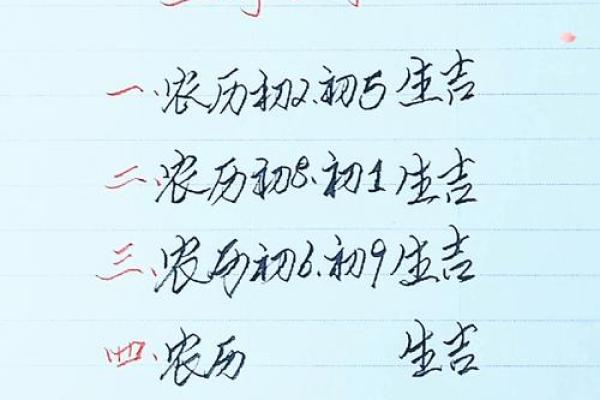 一、农历初2.初5生吉
二、农历初8.初1生吉
三、农历初6.初9生吉
四、农历 生吉